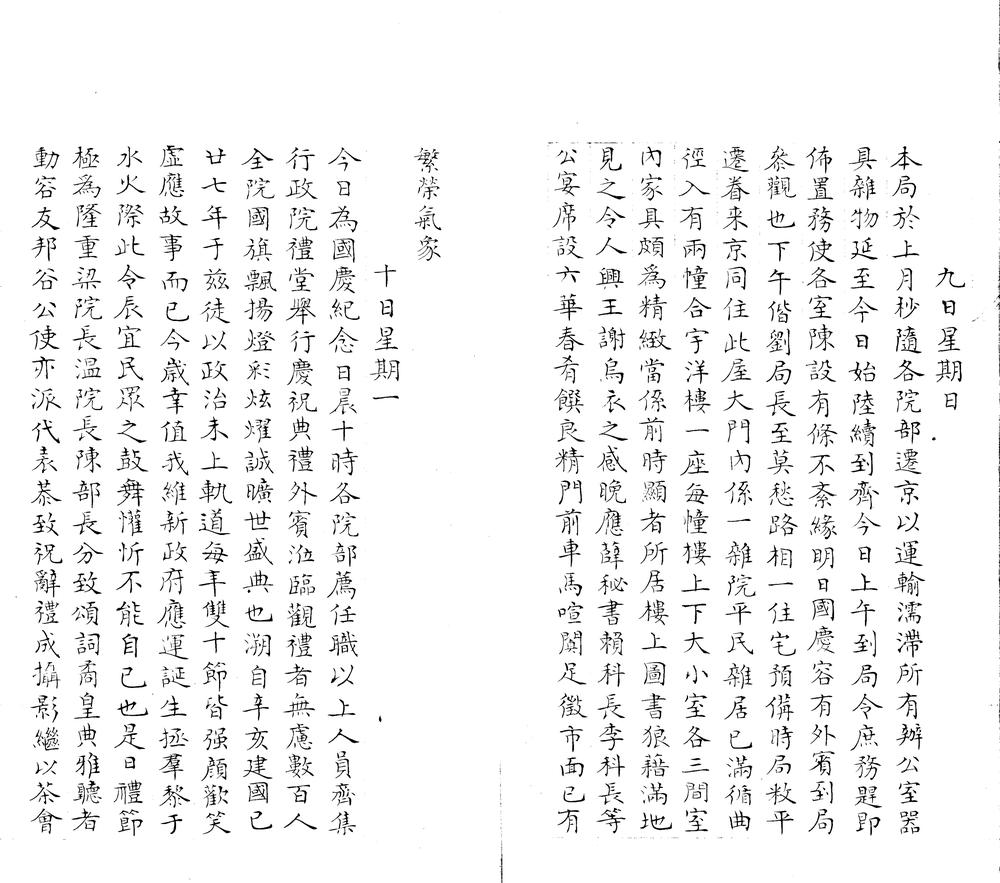 九日星期日
本局於上月杪隨各院部遷京以運輸濡滯所有辦公室器
具雜物延至今日始陸續到齊今日上午到局令庶務趕即
佈置務使各室陳設有條不紊緣明日國慶容有外賓到局
參觀也下午偕劉局長至莫愁路相一住宅預備時局敉平
遷眷来京同住此屋大門內係一雜院平民雜居已滿循曲
徑入有兩幢合宇洋樓一座每幢樓上下大小室各三間室
內家具頗為精緻當係前時顯者所居樓上圖書狼藉滿地
見之令人興王謝烏衣之感晚應薛秘書賴科長李科長等
公宴席設六華春肴饌良精門前車馬喧闐足徵市面已有
繁榮氣象
十日星期一
今日為國慶紀念日晨十時各院部薦任職以上人員齊集
行政院禮堂舉行慶祝典禮外賓涖臨觀禮者無慮數百人
全院國旗飄揚燈彩炫燿誠曠世盛典也溯自辛亥建國已
廿七年于玆徒以政治未上軌道每年雙十節皆强顏歡笑
虛應故事而已今歲幸值我維新政府應運誕生拯羣黎于
水火際此令辰宜民眾之鼓舞懽忻不能自已也是日禮節
極為隆重梁院長温院長陳部長分致頌詞矞皇典雅聽者
動容友邦谷公使亦派代表恭致祝辭禮成攝影繼以茶會